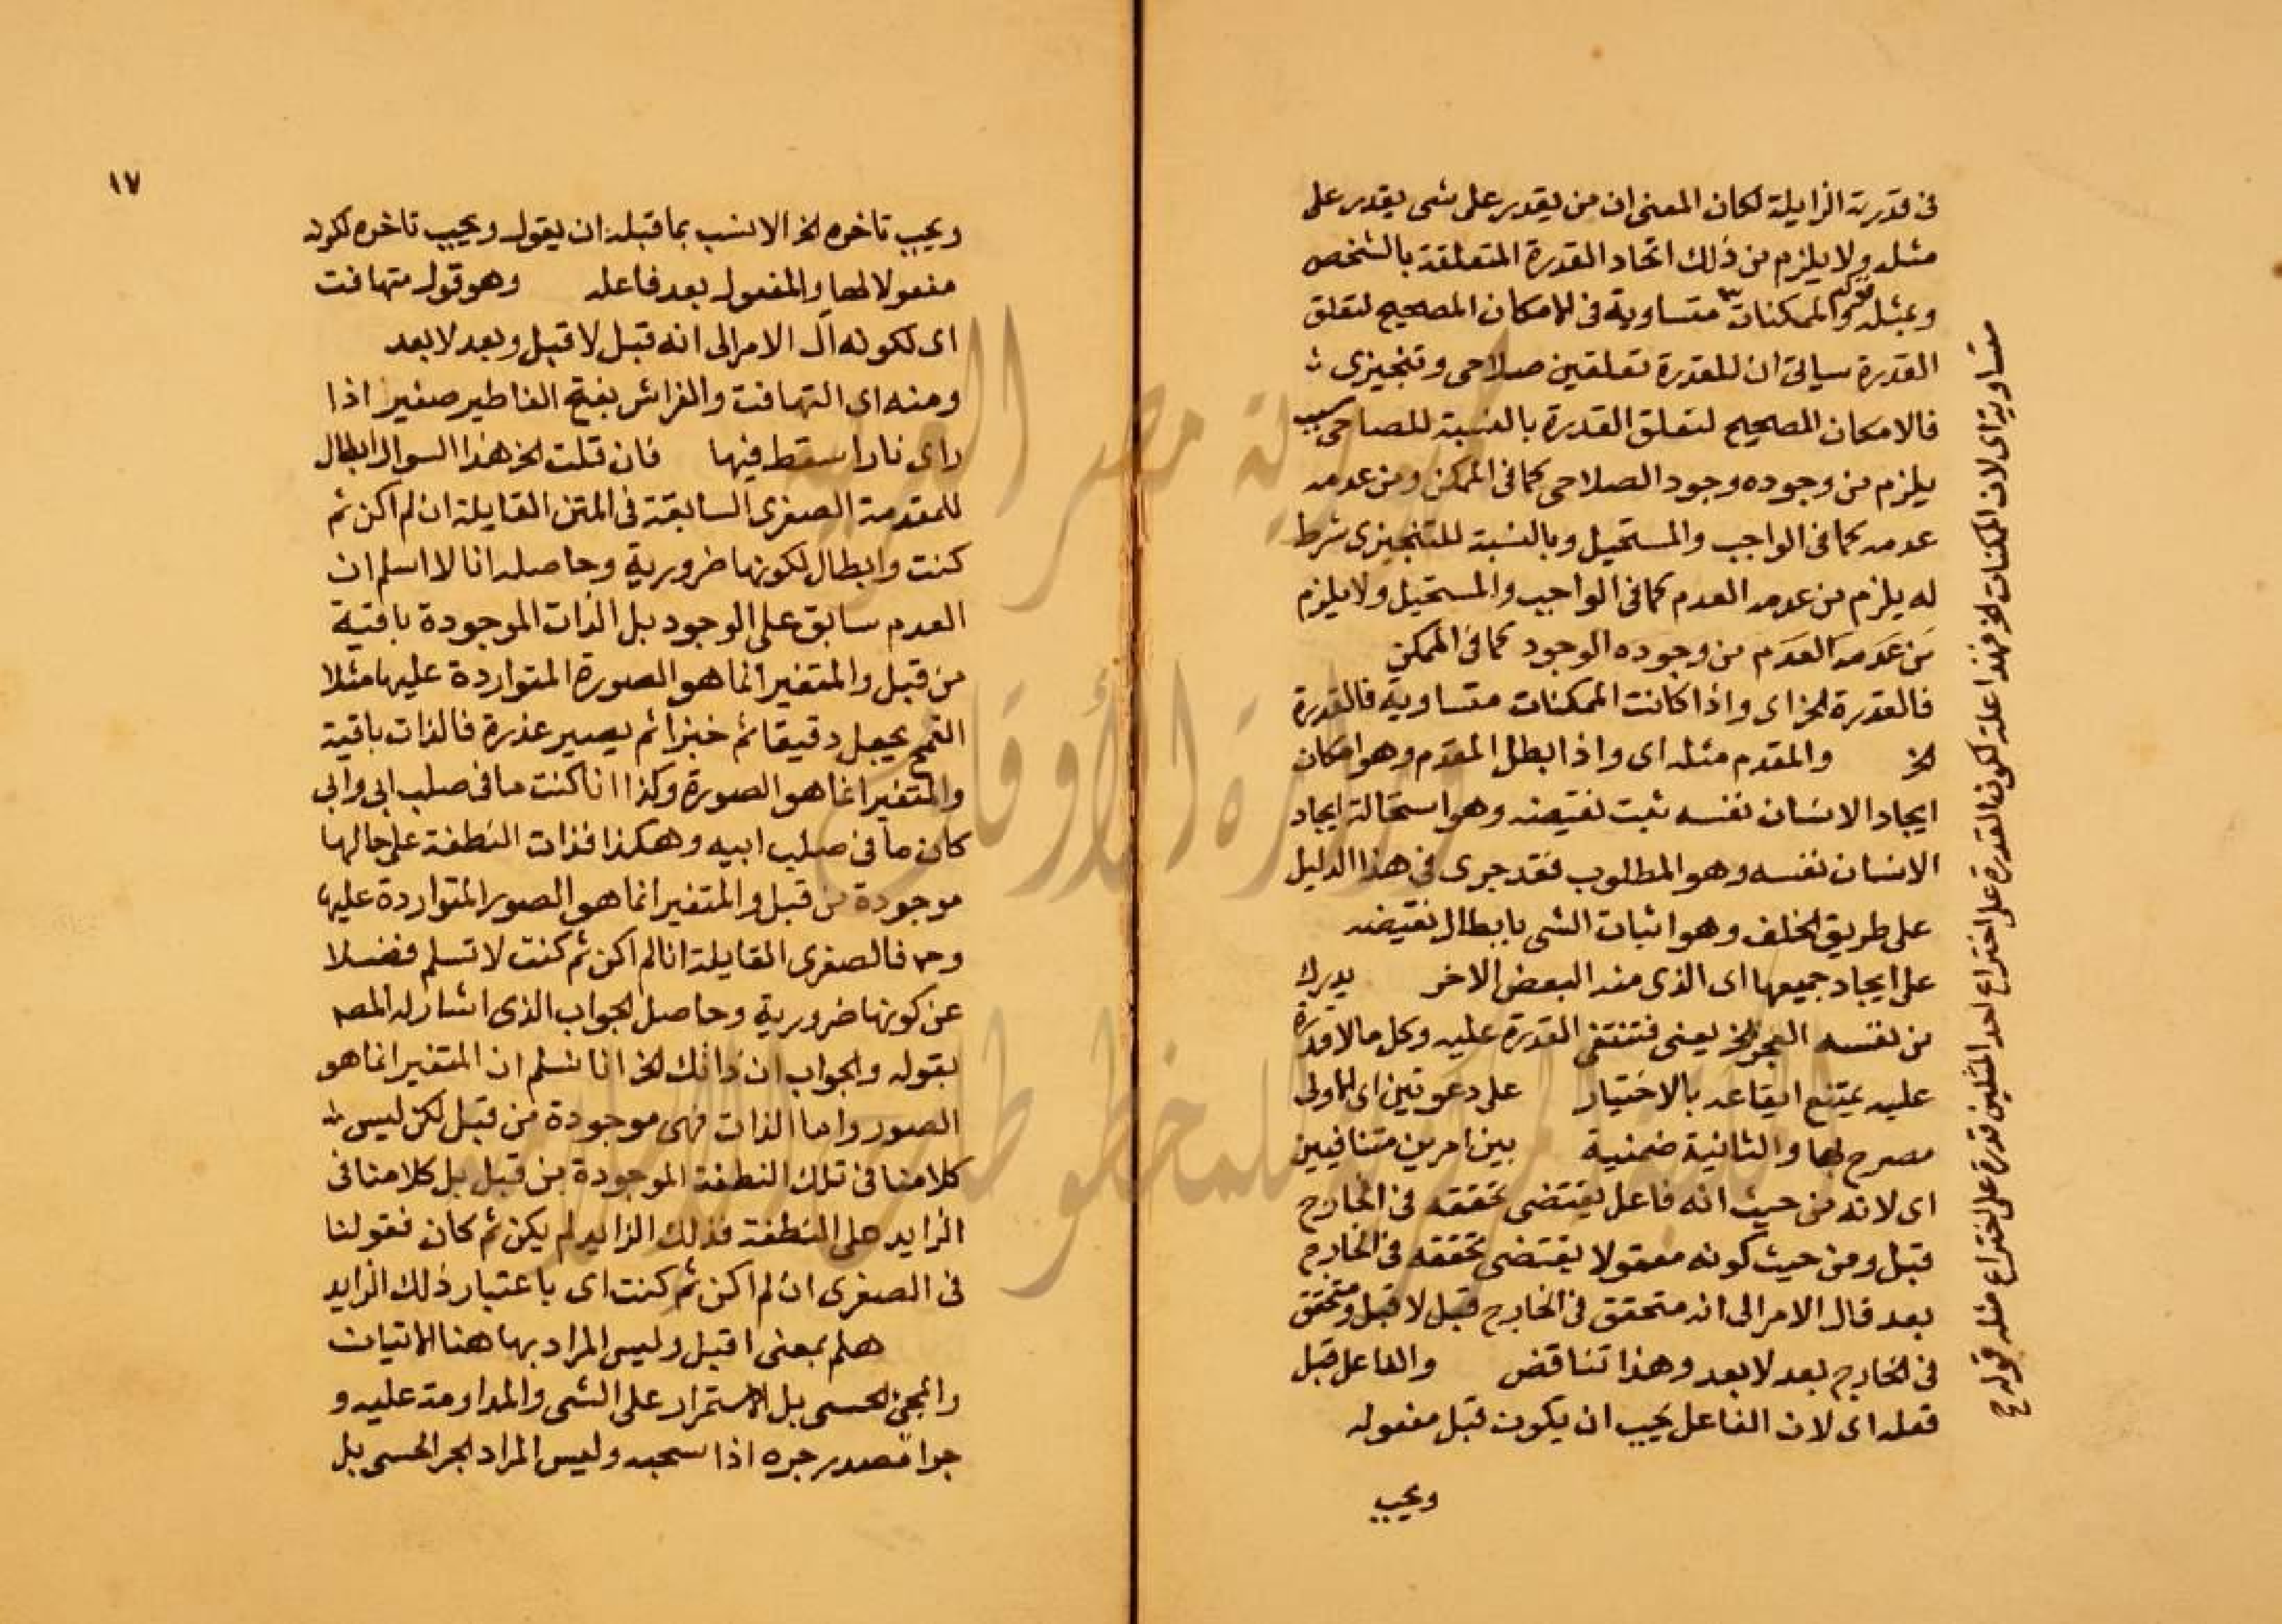 فى قدرته الزايلة لكان المعنى ان من يقدر على شى يقدر على
مثله ولا يلزم من ذلك اتحاد القدرة المتعلقة بالشخص
وبمثله والممكنات متساوية فى الامكان المصحيح لتعلق
القدرة سياتى ان للقدرة تعلقين صلاحى وتنجيزى
فالامكان المصحيح لتعلق القدرة بالنسبة للصلاحى سبب
يلزم من وجوده وجود الصلاحى كما فى الممكن ومن عدمه
عدمه كما فى الواجب والمستحيل وبالنسبة للتنجيزى شرط
له يلزم من عدمه العدم كما فى الواجب والمستحيل ولا يلزم
من عدمه العدم من وجوده الوجود كما فى الممكن
فالقدرة الخ اى واذا كانت الممكنات متساوية فالقدرة
الخ والمقدم مثله اى واذا بطل المقدم وهو امكان
ايجاد الانسان نفسه ثبت نقيضه وهو استحالة ايجاد
الانسان نفسه وهو المطلوب فقد جرى فى هذا الدليل
على طريق الخلف وهو اثبات الشى بابطال نقيضه
على ايجاد جميعها اى الذى منه البعض الاخر يدرك
من نفسه العجز الخ يعنى فتنتفى القدرة عليه وكل ما لا قدرة
عليه يمتنع ايقاعه بالاختيار على دعوتين اى الاولى
مصرح بها والثانية ضمنية بين امرين متنافيين
اى لانه من حيث انه فاعل يقتضى تحققه فى الخارج
قبل ومن حيث كونه مفعولا يقتضى تحققه فى الخارج
بعد فال الامر الى انه متحقق فى الخارج قبل لا قبل ومتحقق
فى الخارج بعد لا بعد وهذا تناقض والفاعل قبل
فعله اى لان الفاعل يجب ان يكون قبل مفعوله
ويجب
متساوية اى لان الممكنات الخ فهذا علة لكون القدرة على اختراع احد المثلين قدرة على اختراع مثله قوله
١٧
ويجب تاخره الخ الانسب بما قبله ان يقول ويجب تاخره لكونه
مفعولا لها والمفعول بعد فاعله وهو قول متهافت
اى لكونه ال الامر الى انه قبل لا قبل وبعد لا بعد
ومنه اى التهافت والفراش بفتح الفا طير صغير اذا
راى نارا سقط فيها فان قلت الخ هذا السوال ابطال
للمقدمة الصغرى السابقة فى المتن القايلة ان لم اكن ثم
كنت وابطال لكونها ضرورية وحاصله انا لا اسلم ان
العدم سابق على الوجود بل الذات الموجودة باقية
من قبل والمتغير انما هو الصورة المتواردة عليها مثلا
القمح يجعل دقيقا ثم خبزا ثم يصير عذرة فالذات باقية
والمتغير انما هو الصورة وكذا انا كنت ما فى صلب ابى وابى
كان ما فى صلب ابيه وهكذا فذات النطفة على حالها
موجودة من قبل والمتغير انما هو الصور المتواردة عليها
وح فالصغرى القايلة انا لم اكن ثم كنت لا تسلم فضلا
عن كونها ضرورية وحاصل الجواب الذى اشار له المصـ
بقوله والجواب ان ذاتك الخ انا نسلم ان المتغير انما هو
الصور واما الذات فهى موجودة من قبل لكن ليس
كلامنا فى تلك النطفة الموجودة من قبل بل كلامنا فى
الزايد على النطفة فذلك الزايد لم يكن ثم كان فقولنا
فى الصغرى ان لم اكن ثم كنت اى باعتبار ذلك الزايد
هلم بمعنى اقبل وليس المراد بها هنا الاتيان
والمجئ الحسى بل الاستمرار على الشى والمداومة عليه و
جرا مصدر جره اذا سحبه وليس المراد الجر الحسى بل
جمهورية مصر العربية
وزارة الأوقاف
المكتبة المركزية للمخطوطات الإسلامية